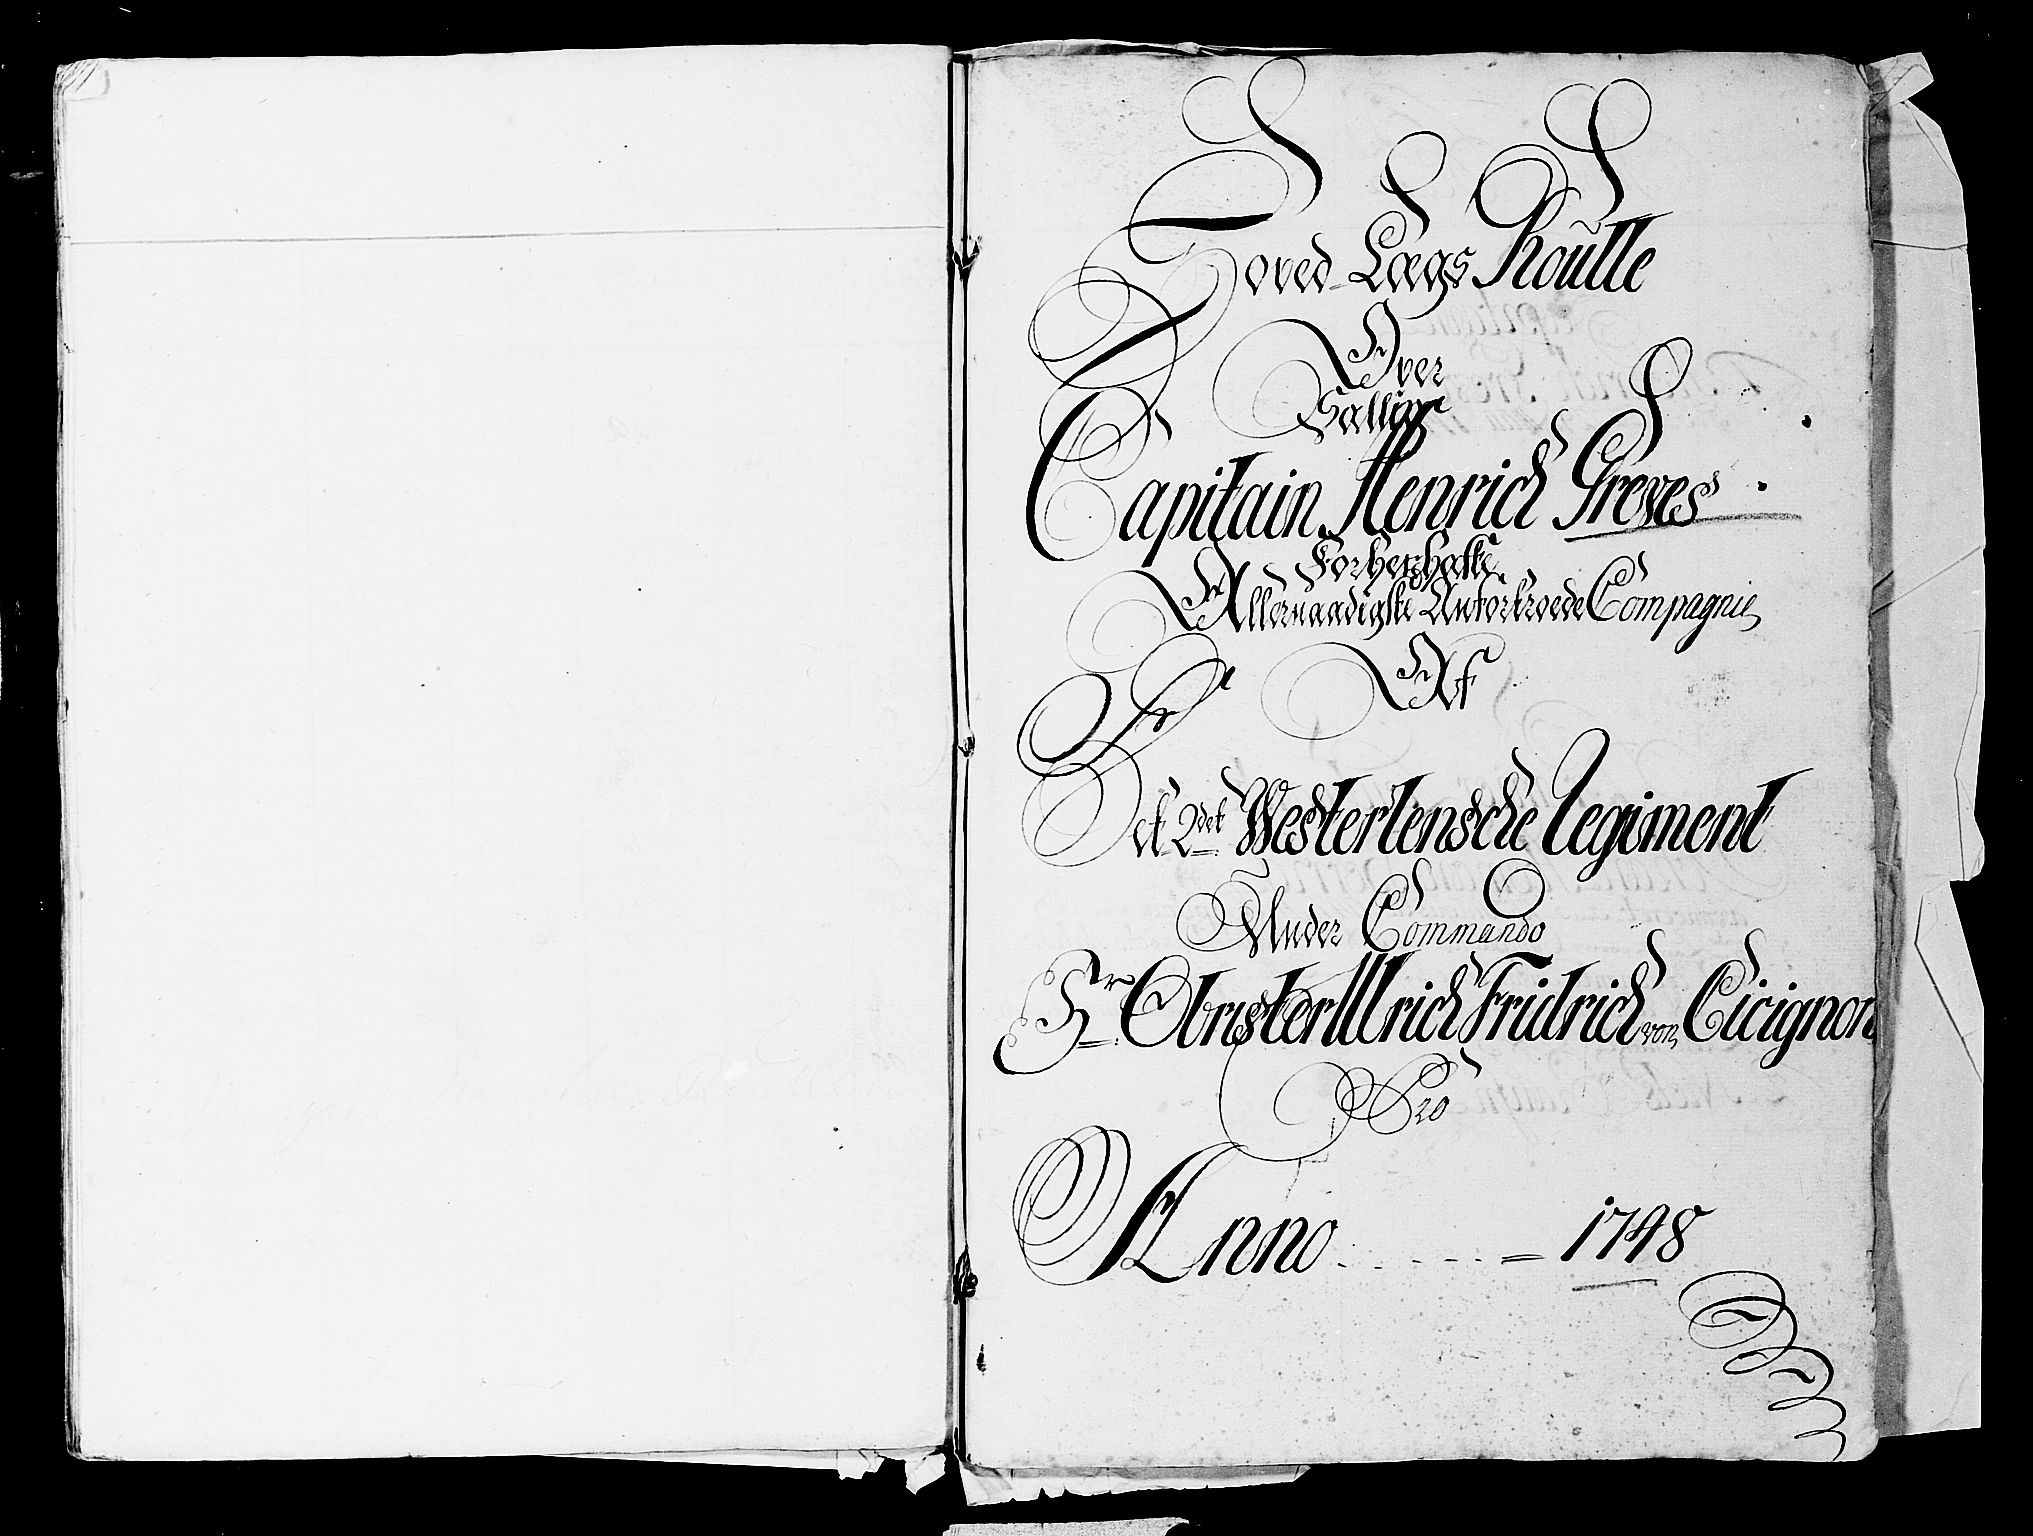 Hoved-Lægs Roulle
Over
Sallig
Capitain Henrich Greves
Forhen hafte
Allernaadigste Anfortroede Compagnie
Af
Det 2det Westerlensche Regiment
Under Commando
Hr Obrister Ulrich Fridrich von Cicignon
Pro
Anno - - - - - = 1748